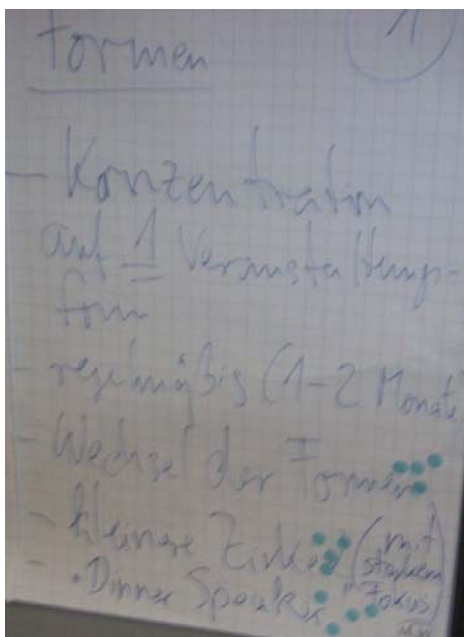 Formen 1
- Konzentration
auf 1 Veranstaltungs-
form
- regelmäßig (1-2 Monate
- Wechsel der Formen
- kleinere Zirkel (mit
starkem
Fokus)
- Dinner Speaker